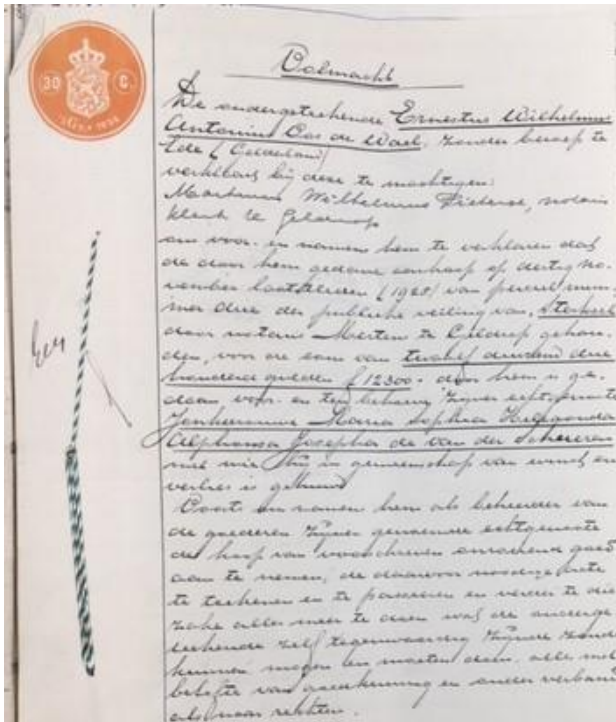 30 C.
Volmacht
De ondergeteekende Ernestus Wilhelmus
Antonius Vos de Wael, zonder beroep te
Ede (Gelderland)
verklaart bij deze te machtigen:
Wilhelmus, notaris
klerk te Geldrop
om voor- en namens hem te verklaren dat
de door hem gedane aankoop op dertig No-
vember (1928) van perceel num-
mer drie der publieke veiling van, Sterksel
door notaris Mertens te Geldrop gehou-
den, voor de som van twaalf duizend drie
honderd gulden f 12300.- door hem is ge-
daan voor- en ten behoeve zijner echtgenoote
Jonkvrouwe Maria Sophia
Alphonsa Josepha de van der Schueren
met wie hij in gemeenschap van winst en
verlies is gehuwd
Voorts en namens hem als beheerder van
de goederen zijner genoemde echtgenoote
de koop van voorschreven onroerend goed
aan te nemen, de daarvoor noodige acte
te teekenen en te passeeren en verder te die
zake alles meer te doen wat de onderge-
teekende zelf tegenwoordig zijnde zoude
kunnen mogen en moeten doen, alles met
belofte van goedkeuring en onder verband
als naar rechten.